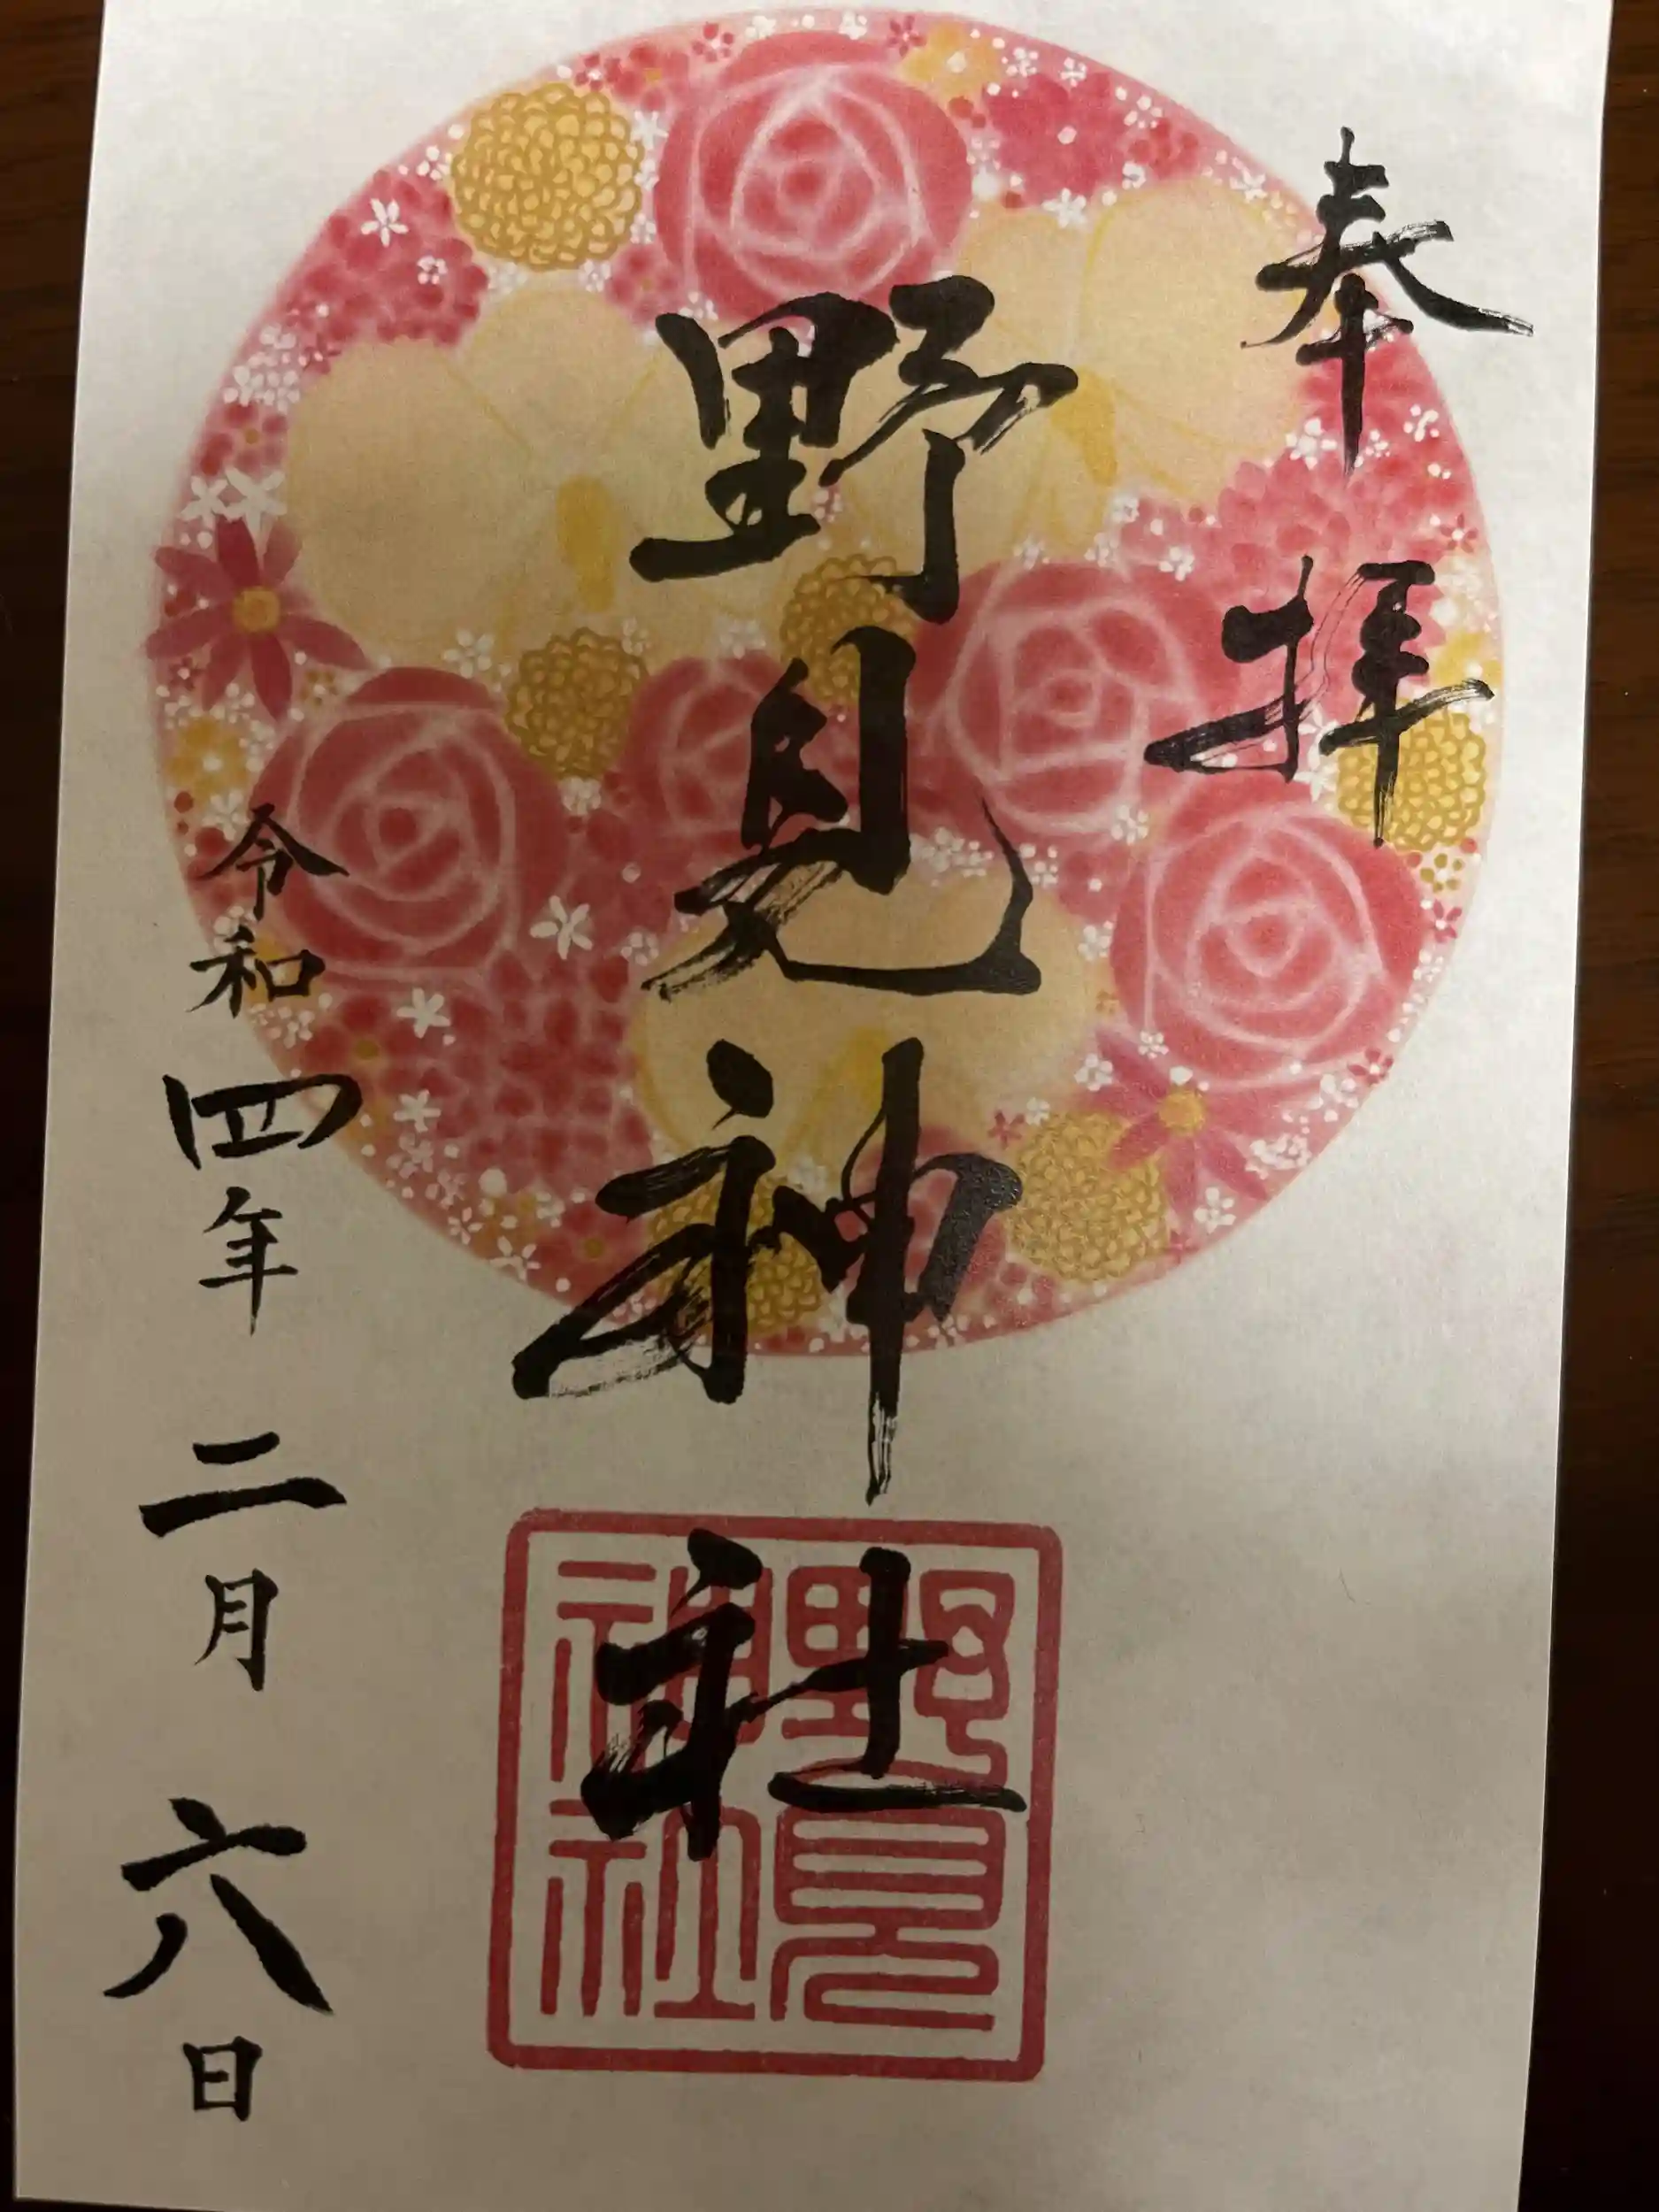 奉拝
野見神社
野見神社
令和四年二月六日